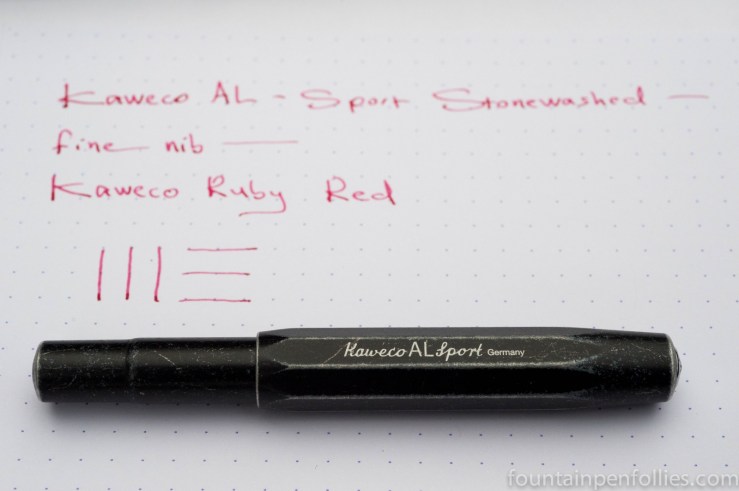 Kaweco AL - Sport Stonewashed —
fine nib —
Kaweco Ruby Red
Kaweco AL Sport Germany
fountainpenfollies.com